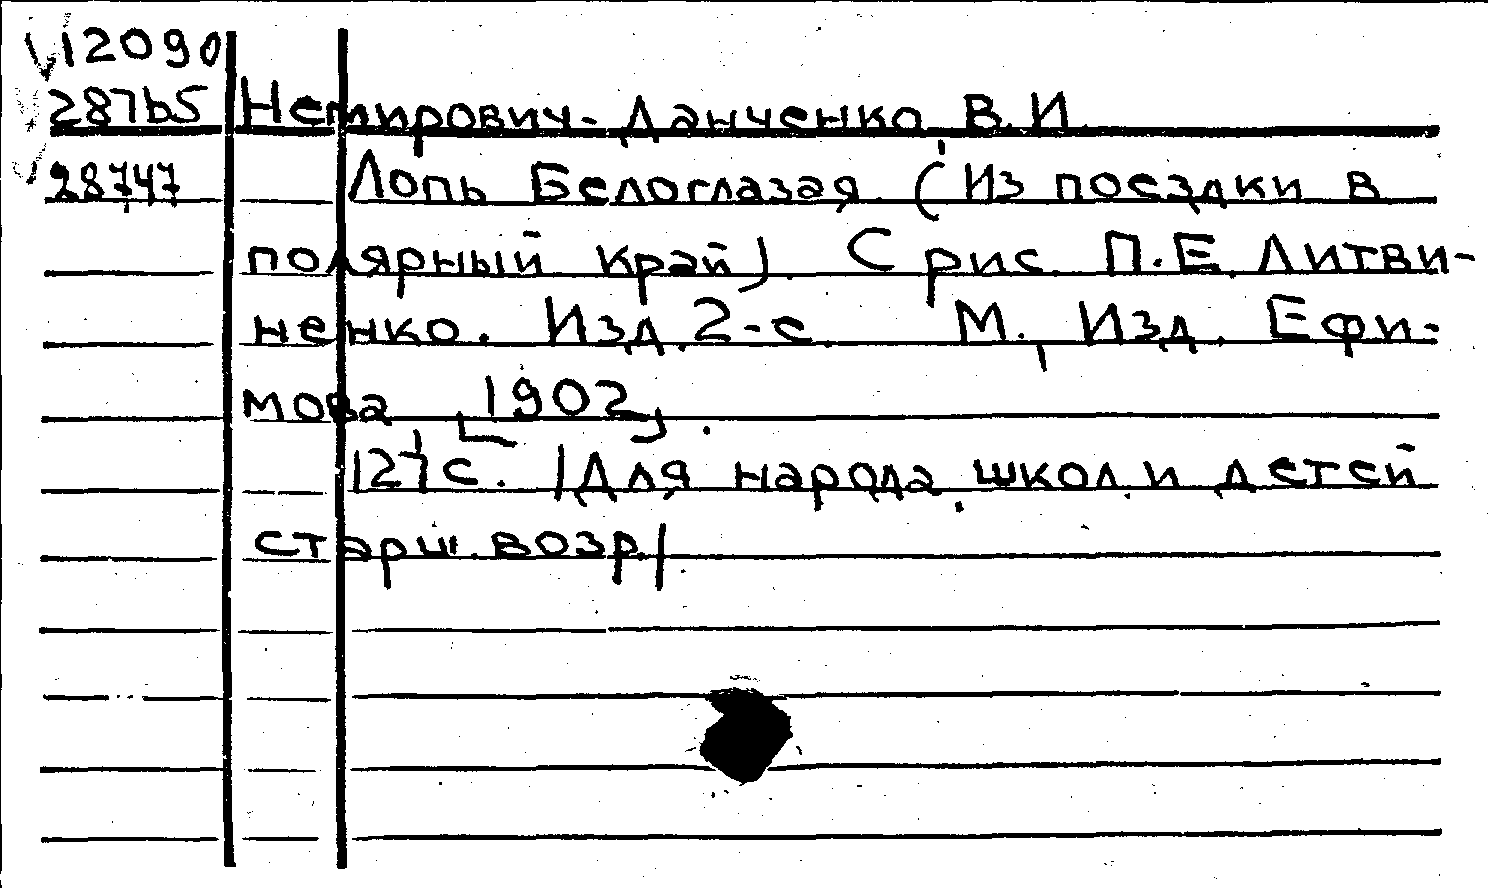 12090
28765 Немирович-Данченко, В.И.
28747 Лопь Белоглазая. (Из поездки в
полярный край). С рис. П.Е. Литви-
ненко. Изд. 2-е. М., Изд. Ефи-
мова [1902].
127 с. /Для народа, школ. и детей
старш. возр./